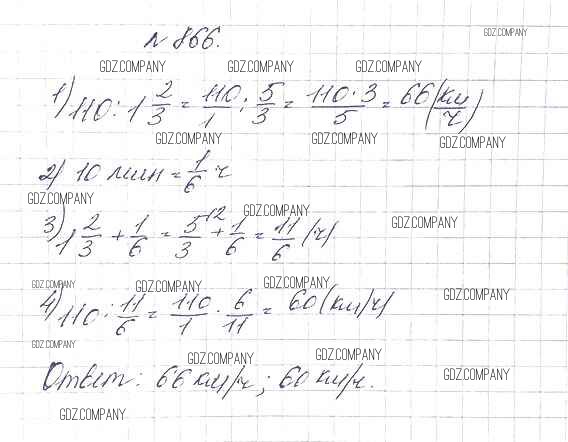 № 866.
GDZ.COMPANY
GDZ.COMPANY GDZ.COMPANY GDZ.COMPANY
1) 110 : 1 2/3 = 110/1 : 5/3 = 110·3/5 = 66 (км/ч)
GDZ.COMPANY GDZ.COMPANY GDZ.COMPANY
2) 10 мин = 1/6 ч
GDZ.COMPANY GDZ.COMPANY GDZ.COMPANY
3) 1 2/3 + 1/6 = 5/3 \2 + 1/6 = 11/6 (ч)
GDZ.COMPANY GDZ.COMPANY GDZ.COMPANY GDZ.COMPANY
4) 110 : 11/6 = 110/1 · 6/11 = 60 (км/ч)
GDZ.COMPANY GDZ.COMPANY GDZ.COMPANY
Ответ: 66 км/ч; 60 км/ч.
GDZ.COMPANY
GDZ.COMPANY